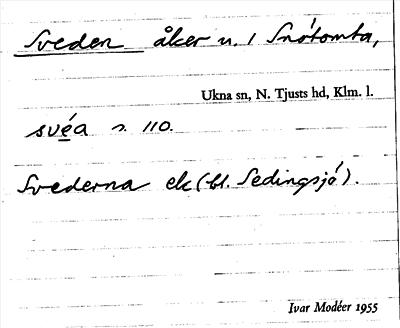 Sveden åker n. 1 Snótomta,
Ukna sn, N. Tjusts hd, Klm. l.
svéa s. 110.
Svederna ek (bl. Sedingsjö).
Ivar Modéer 1955